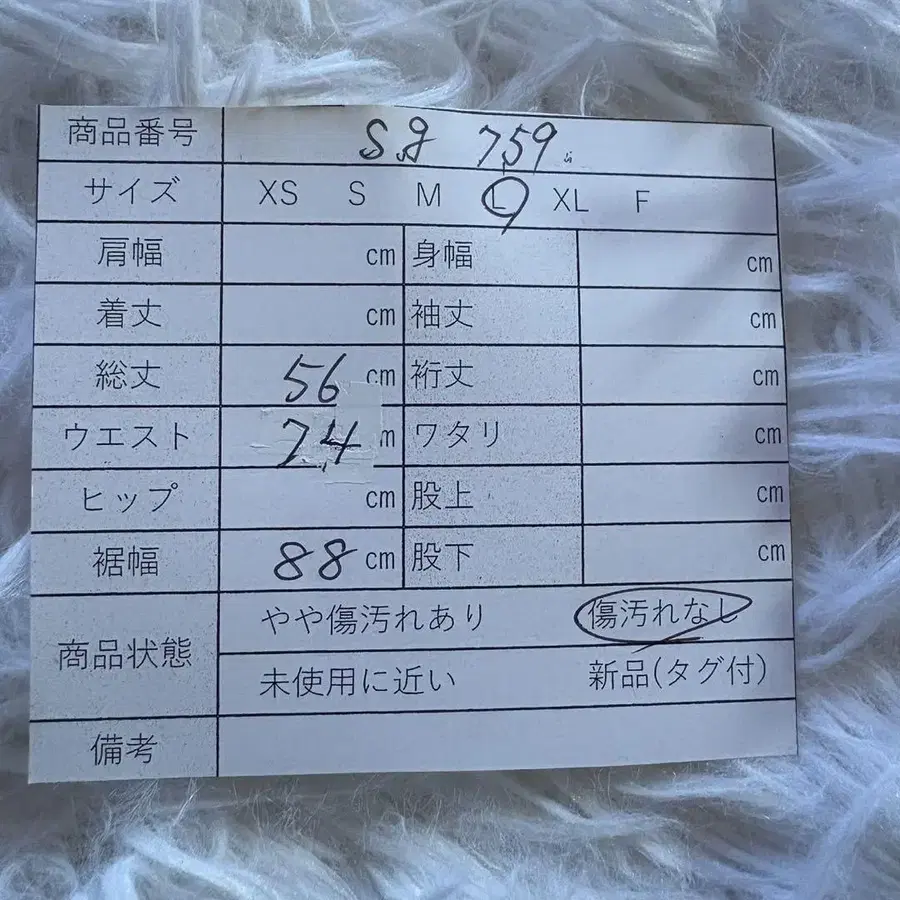 商品番号 Sg 759
サイズ XS S M L XL F
肩幅 cm 身幅 cm
着丈 cm 袖丈 cm
総丈 56 cm 裄丈 cm
ウエスト 74 m ワタリ cm
ヒップ cm 股上 cm
裾幅 88 cm 股下 cm
商品状態 やや傷汚れあり 傷汚れなし
未使用に近い 新品(タグ付)
備考